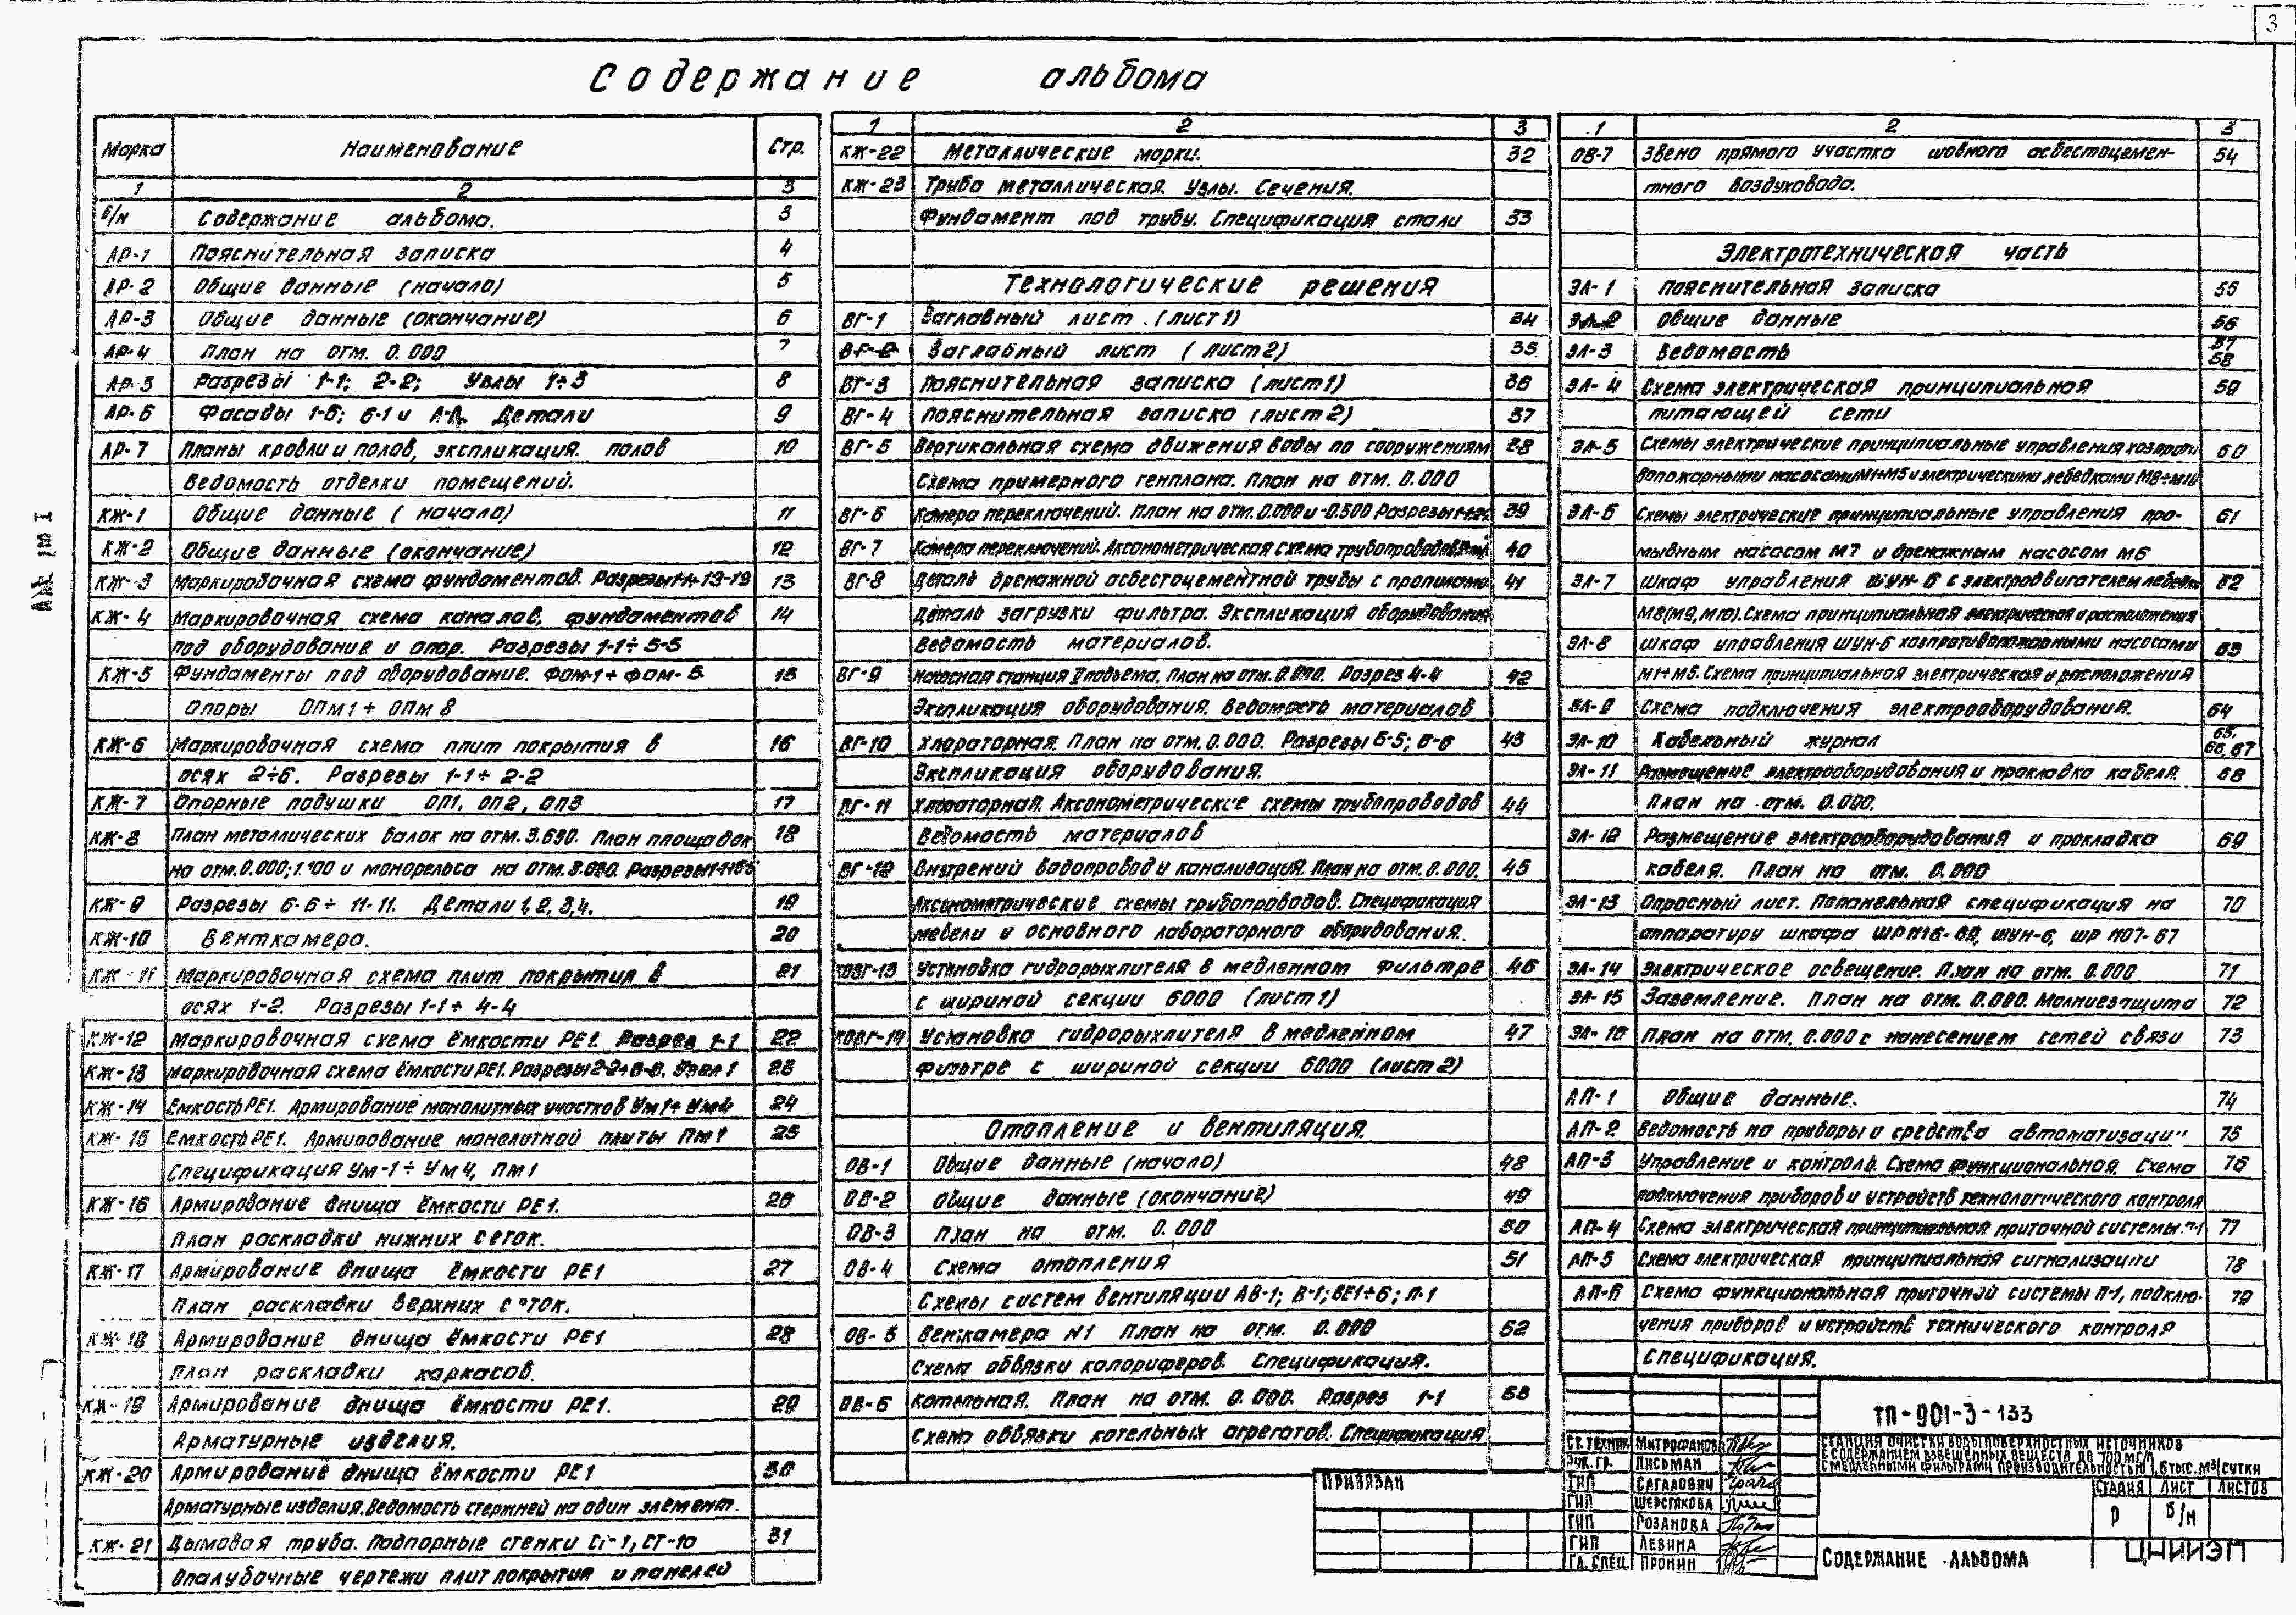 3
Содержание альбома
Марка Наименование Стр.
1 2 3
б/н Содержание альбома. 3
АР-1 Пояснительная записка 4
АР-2 Общие данные (начало) 5
АР-3 Общие данные (окончание) 6
АР-4 План на отм. 0.000 7
АР-5 Разрезы 1-1; 2-2; Узлы 1÷3 8
АР-6 Фасады 1-6; 6-1 и А-Д. Детали 9
АР-7 Планы кровли и полов, экспликация полов 10
Ведомость отделки помещений.
КЖ-1 Общие данные (начало) 11
КЖ-2 Общие данные (окончание) 12
КЖ-3 Маркировочная схема фундаментов. Разрезы 1-1÷13-13 13
КЖ-4 Маркировочная схема каналов, фундаментов 14
под оборудование и опор. Разрезы 1-1÷5-5
КЖ-5 Фундаменты под оборудование. Фом-1÷Фом-6. 15
Опоры ОПм1÷ОПм8
КЖ-6 Маркировочная схема плит покрытия в 16
осях 2÷6. Разрезы 1-1÷2-2
КЖ-7 Опорные подушки ОП1, ОП2, ОП3 17
КЖ-8 План металлических балок на отм. 3.630. План площадок 18
на отм. 0.000; 1.100 и монорельса на отм. Разрезы 1-1÷5-5
КЖ-9 Разрезы 6-6÷11-11. Детали 1,2,3,4. 19
КЖ-10 Венткамера. 20
КЖ-11 Маркировочная схема плит покрытия в 21
осях 1-2. Разрезы 1-1÷4-4
КЖ-12 Маркировочная схема ёмкости РЕ1. Разрез 1-1 22
КЖ-13 Маркировочная схема ёмкости РЕ1. Разрезы 2-2÷6-6. Узел 1 23
КЖ-14 Ёмкость РЕ1. Армирование монолитных участков Ум1÷Ум4 24
КЖ-15 Ёмкость РЕ1. Армирование монолитной плиты Пм1 25
Спецификация Ум-1÷Ум4, Пм1
КЖ-16 Армирование днища ёмкости РЕ1. 26
План раскладки нижних сеток.
КЖ-17 Армирование днища ёмкости РЕ1 27
План раскладки верхних сеток.
КЖ-18 Армирование днища ёмкости РЕ1 28
План раскладки каркасов.
КЖ-19 Армирование днища ёмкости РЕ1. 29
Арматурные изделия.
КЖ-20 Армирование днища ёмкости РЕ1 30
Арматурные изделия. Ведомость стержней на один элемент.
КЖ-21 Дымовая труба. Подпорные стенки Ст-1, СТ-10 31
Опалубочные чертежи плит покрытия и панелей
1 2 3
КЖ-22 Металлические марки. 32
КЖ-23 Труба металлическая. Узлы. Сечения.
Фундамент под трубу. Спецификация стали 33
Технологические решения
ВГ-1 Заглавный лист. (лист 1) 34
ВГ-2 Заглавный лист (лист 2) 35
ВГ-3 Пояснительная записка (лист 1) 36
ВГ-4 Пояснительная записка (лист 2) 37
ВГ-5 Вертикальная схема движения воды по сооружениям 38
Схема примерного генплана. План на отм. 0.000
ВГ-6 Камера переключений. План на отм. 0.000 и -0.500 Разрезы 39
ВГ-7 Камера переключений. Аксонометрическая схема трубопроводов. 40
ВГ-8 Деталь дренажной асбестоцементной трубы с пропилами 41
Деталь загрузки фильтра. Экспликация оборудования
Ведомость материалов.
ВГ-9 Насосная станция II подъема. План на отм. 0.000. Разрез 4-4 42
Экспликация оборудования. Ведомость материалов
ВГ-10 Хлораторная. План на отм. 0.000. Разрезы 5-5; 6-6 43
Экспликация оборудования.
ВГ-11 Хлораторная. Аксонометрические схемы трубопроводов 44
Ведомость материалов
ВГ-12 Внутрений водопровод и канализация. План на отм. 0.000. 45
Аксонометрические схемы трубопроводов. Спецификация
мебели и основного лабораторного оборудования.
ВГ-13 Установка гидрорыхлителя в медленном фильтре 46
с шириной секции 6000 (лист 1)
ВГ-14 Установка гидрорыхлителя в медленном 47
фильтре с шириной секции 6000 (лист 2)
Отопление и вентиляция.
ОВ-1 Общие данные (начало) 48
ОВ-2 Общие данные (окончание) 49
ОВ-3 План на отм. 0.000 50
ОВ-4 Схема отопления 51
Схемы систем вентиляции АВ-1; В-1; ВЕ1÷6; П-1
ОВ-5 Венткамера N1 План на отм. 0.000 52
Схема обвязки калориферов. Спецификация.
ОВ-6 Котельная. План на отм. 0.000. Разрез 1-1 53
Схема обвязки котельных агрегатов. Спецификация
1 2 3
ОВ-7 Звено прямого участка шовного асбестоцемен- 54
тного воздуховода.
Электротехническая часть
ЭЛ-1 Пояснительная записка 55
ЭЛ-2 Общие данные 56
ЭЛ-3 Ведомость 57 58
ЭЛ-4 Схема электрическая принципиальная 59
питающей сети
ЭЛ-5 Схемы электрические принципиальные управления хозпроти- 60
вопожарными насосами М1÷М5 и электрическими лебедками М8÷М10
ЭЛ-6 Схемы электрические принципиальные управления про- 61
мывным насосом М7 и дренажным насосом М6
ЭЛ-7 Шкаф управления ШУН-6 с электродвигателем лебедки 62
М8(М9, М10). Схема принципиальная электрическая и расположения
ЭЛ-8 Шкаф управления ШУН-6 хозпротивопожарными насосами 63
М1÷М5. Схема принципиальная электрическая и расположения
ЭЛ-9 Схема подключения электрооборудования. 64
ЭЛ-10 Кабельный журнал 65, 66, 67
ЭЛ-11 Размещение электрооборудования и прокладка кабеля. 68
План на отм. 0.000.
ЭЛ-12 Размещение электрооборудования и прокладка 69
кабеля. План на отм. 0.000
ЭЛ-13 Опросный лист. Попанельная спецификация на 70
аппаратуру шкафа ШУН-6,
ЭЛ-14 Электрическое освещение. План на отм. 0.000 71
ЭЛ-15 Заземление. План на отм. 0.000. Молниезащита 72
ЭЛ-16 План на отм. 0.000 с нанесением сетей связи 73
АП-1 Общие данные. 74
АП-2 Ведомость на приборы и средства автоматизации 75
АП-3 Управление и контроль. Схема функциональная. Схема 76
подключения приборов и устройств технологического контроля
АП-4 Схема электрическая принципиальная приточной системы П-1 77
АП-5 Схема электрическая принципиальная сигнализации 78
АП-6 Схема функциональная приточной системы П-1, подклю- 79
чения приборов и устройств технического контроля
Спецификация.
ТП-901-3-133
Станция очистки воды поверхностных источников
с содержанием взвешенных веществ до 700 мг/л
с медленными фильтрами производительностью 1,6 тыс. м³/сутки
Стадия Лист Листов
Р б/н
Содержание альбома
ЦНИИЭП
Привязан
Ст. техник Митрофанова
Рук. гр. Письман
ГИП Сагалович
ГИП Шерстякова
ГИП Розанова
ГИП Левина
Гл. спец. Пронин